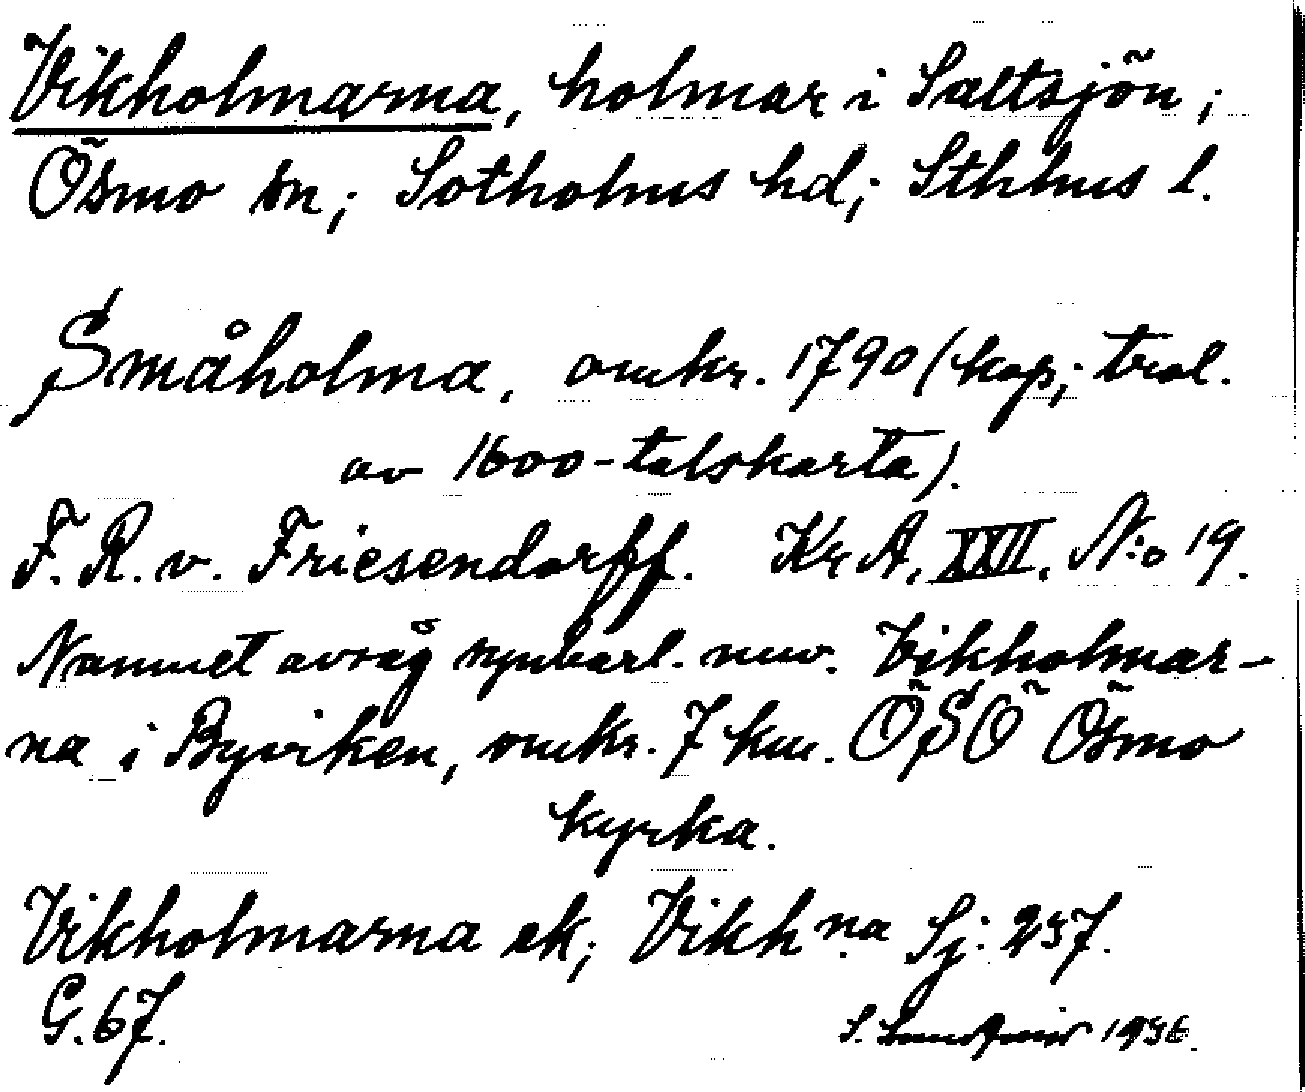 Vikholmarna, holmar i Saltsjön;
Ösmo sn; Sotholms hd; Sthlms l.
Småholma, omkr. 1790 (kop; trol.
av 1600-talskarta).
F. R. v. Friesendorff. Kr A, XXII, N:o 19.
Namnet avsåg synbarl. nuv. Vikholmar-
na i Byviken, omkr. 7 km. ÖSÖ Ösmo
kyrka.
Vikholmarna ek; Vikh na Sj: 257.
G. 67.
S. 1936.